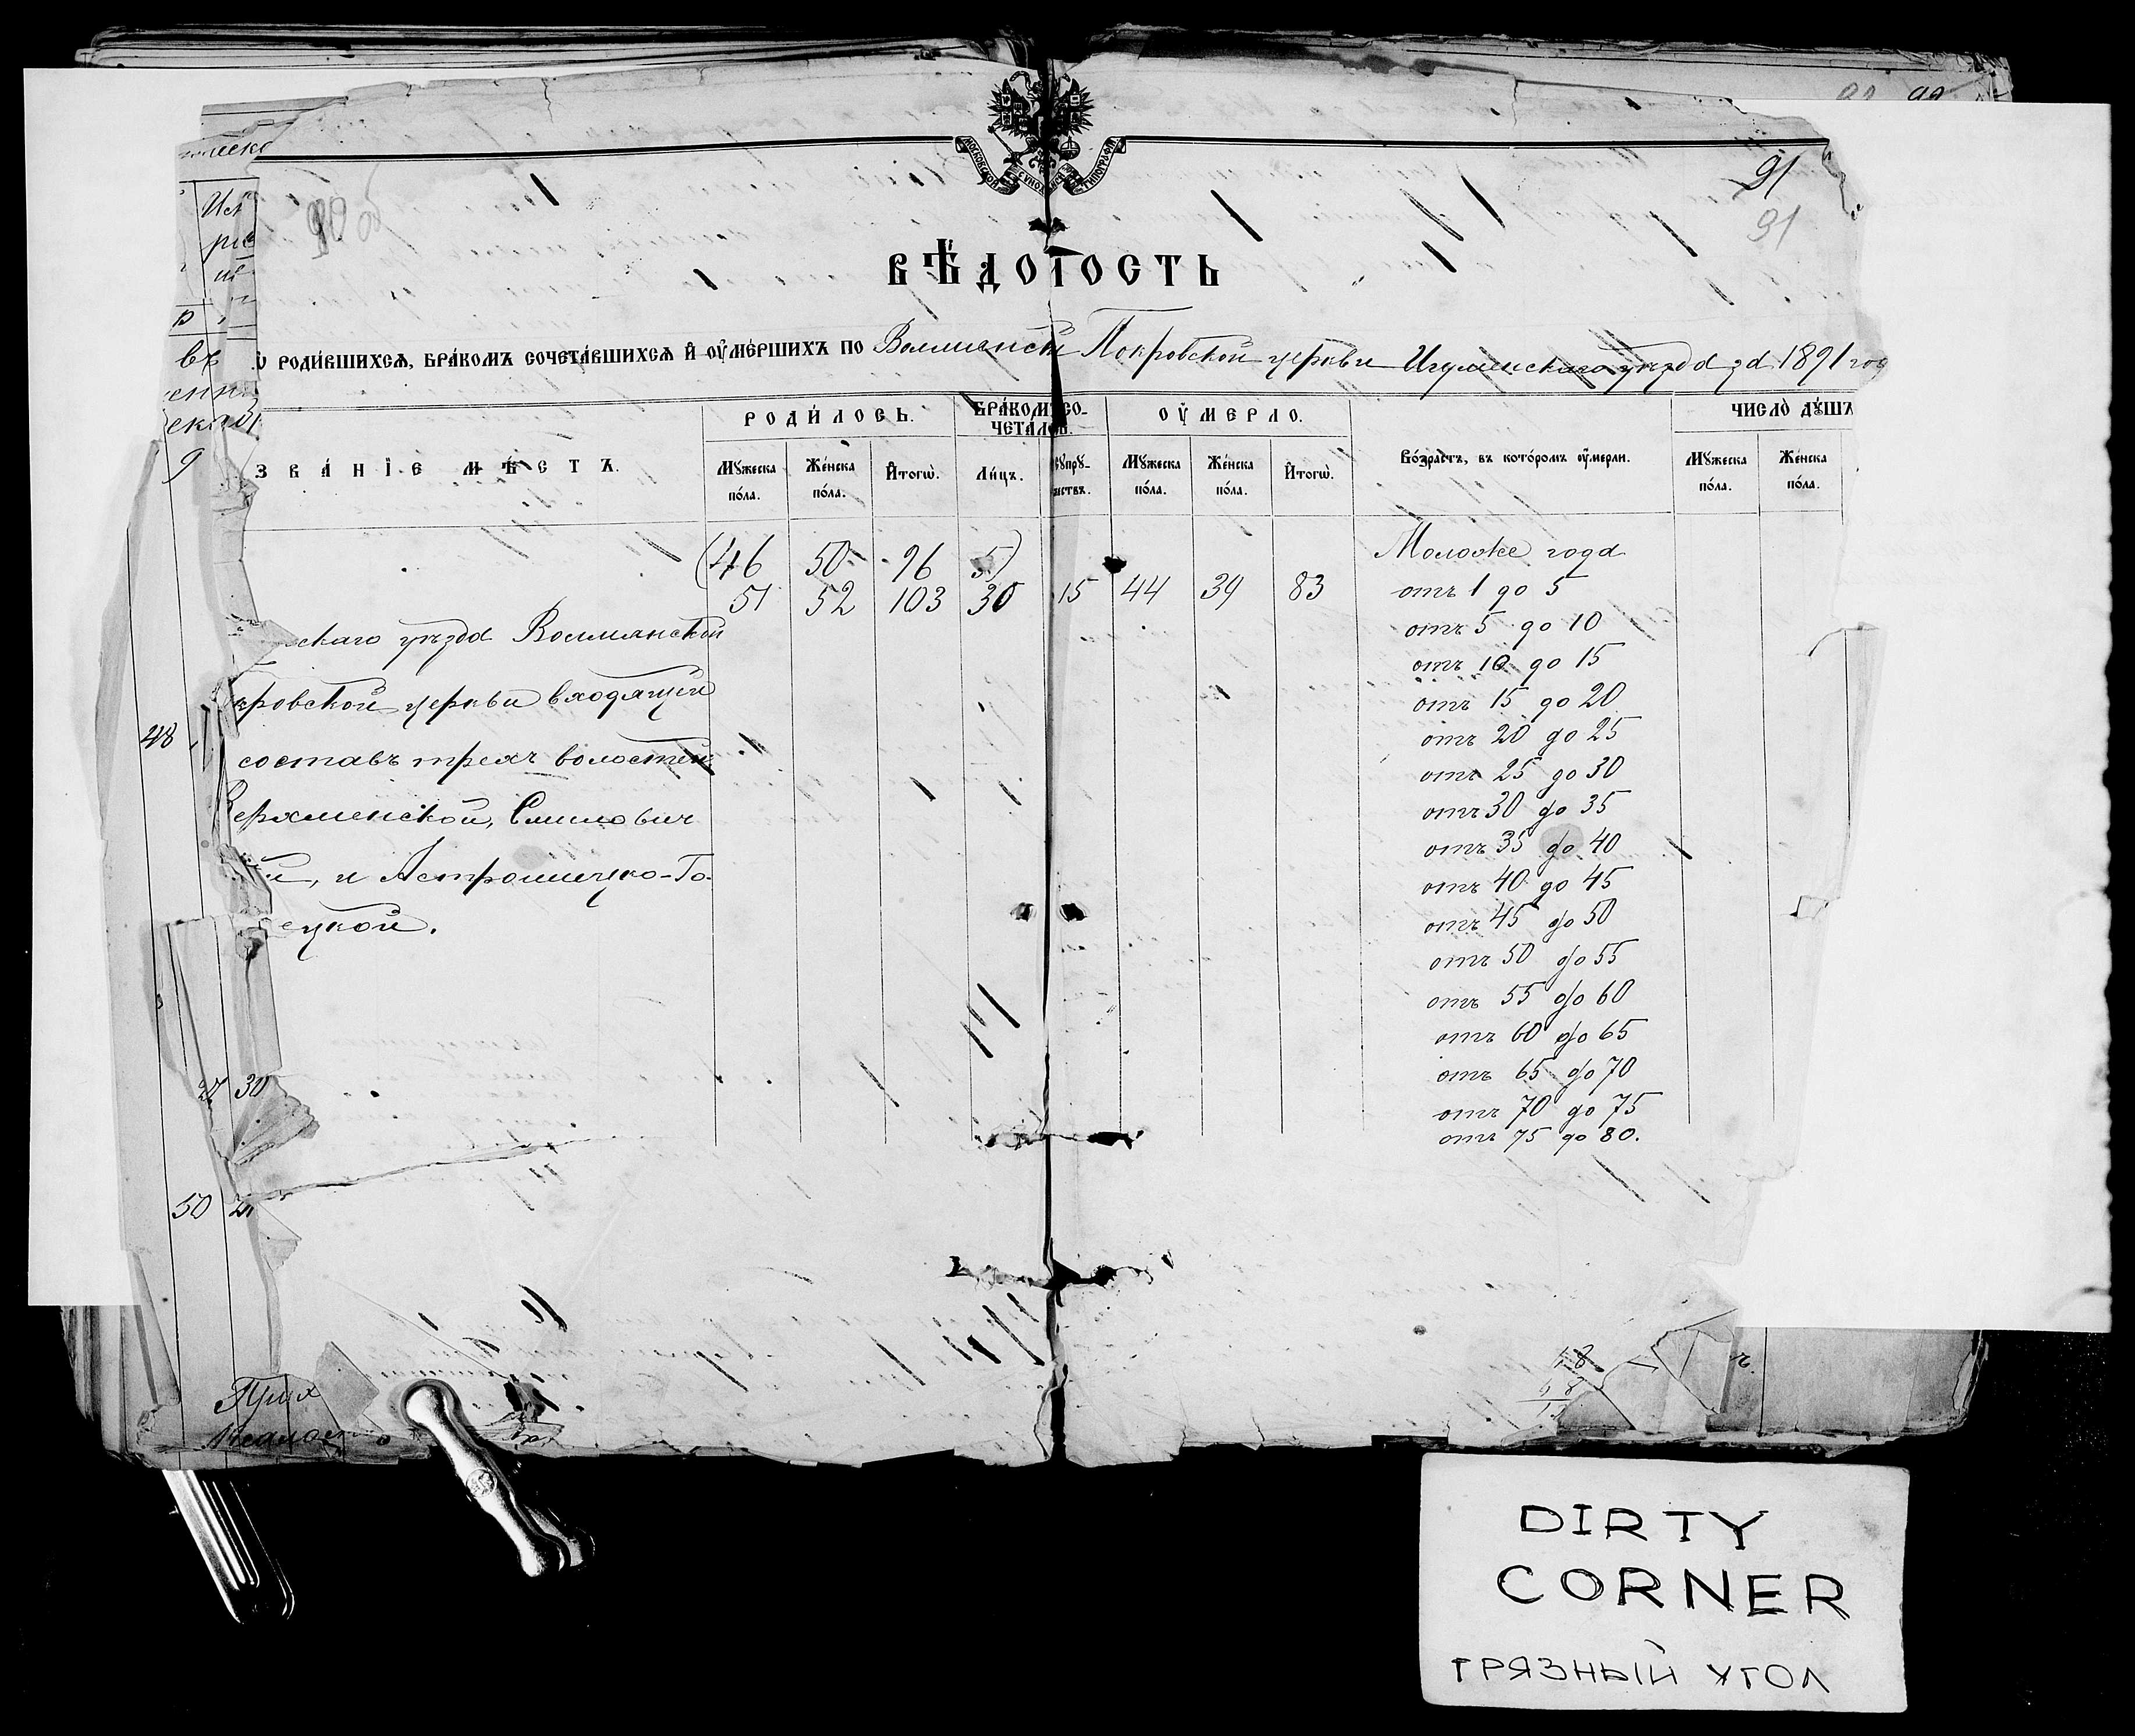 91
90 об
91
ВѢДОМОСТЬ
О РОДИВШИХСЯ, БРАКОМЪ СОЧЕТАВШИХСЯ И ОУМЕРШИХЪ ПО Волмянской Покровской церкви Игуменскаго уѣзда за 1891 год
ЗВАНІЕ МѢСТЪ.
РОДИЛОСЬ.
Мужеска пола.
Женска пола.
Итогѡ.
БРАКОМЪ СО-
ЧЕТАЛОСЬ.
Лицъ.
ОУМЕРЛО.
Мужеска пола.
Женска пола.
Итогѡ.
Возрастъ, въ которомъ оумерли.
ЧИСЛО ДУШЪ
Мужеска пола.
Женска пола.
(46 50 96 5)
51 52 103 30 15 44 39 83
скаго уѣзда Волмянской
кровской церкви входящей
составъ трехъ волостей
Верхменской, Смилович
й, и Астрошицко-Го-
ецкой.
Моложе года
отъ 1 до 5
отъ 5 до 10
отъ 10 до 15
отъ 15 до 20
отъ 20 до 25
отъ 25 до 30
отъ 30 до 35
отъ 35 до 40
отъ 40 до 45
отъ 45 до 50
отъ 50 до 55
отъ 55 до 60
отъ 60 до 65
отъ 65 до 70
отъ 70 до 75
отъ 75 до 80.
въ
48
27 30
50
DIRTY
CORNER
ГРЯЗНЫЙ УГОЛ